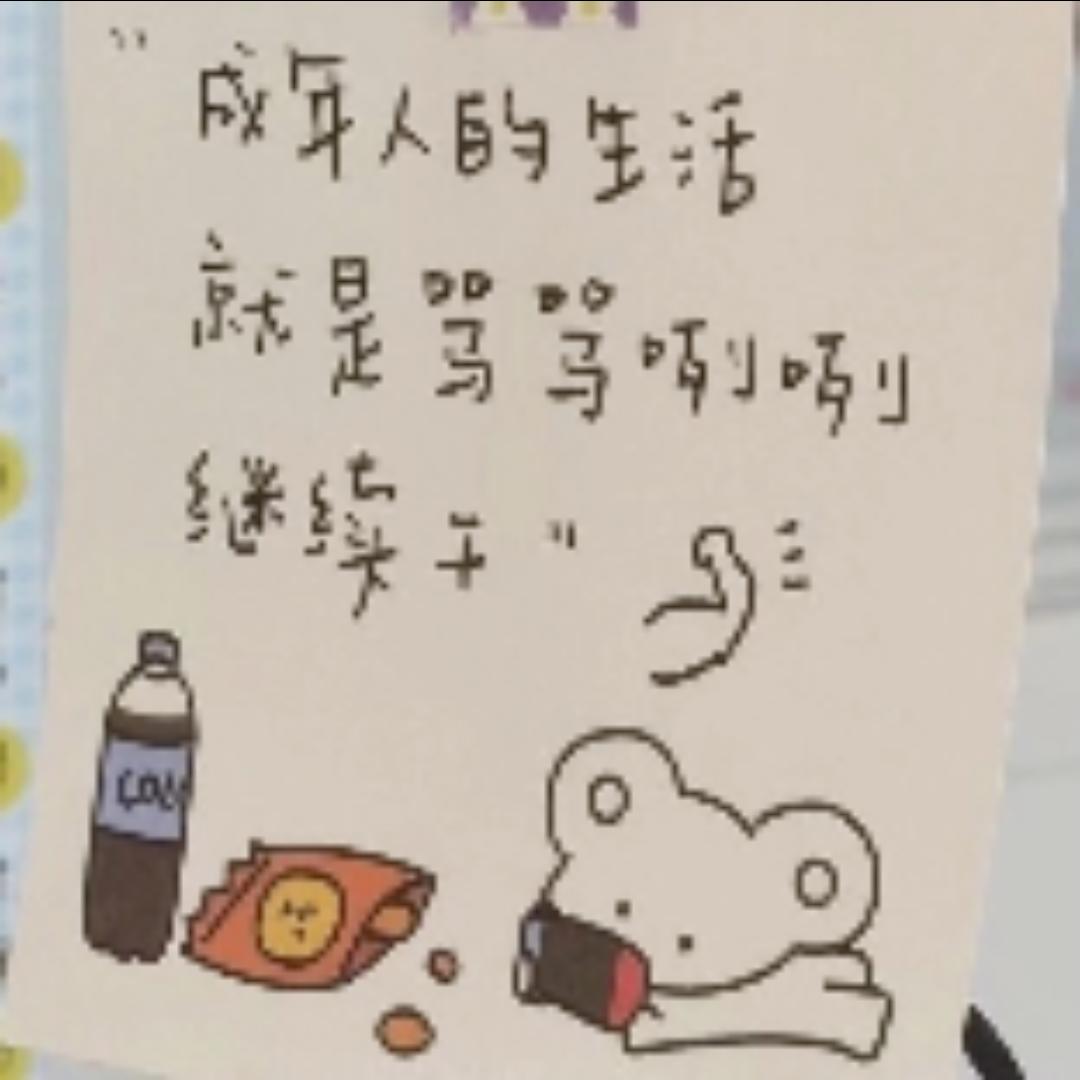 "成年人的生活
就是骂骂咧咧
继续干"